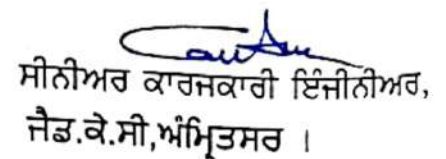 ਸੀਨੀਅਰ ਕਾਰਜਕਾਰੀ ਇੰਜੀਨੀਅਰ,
ਜੈਡ.ਕੇ.ਸੀ,ਅੰਮ੍ਰਿਤਸਰ ।